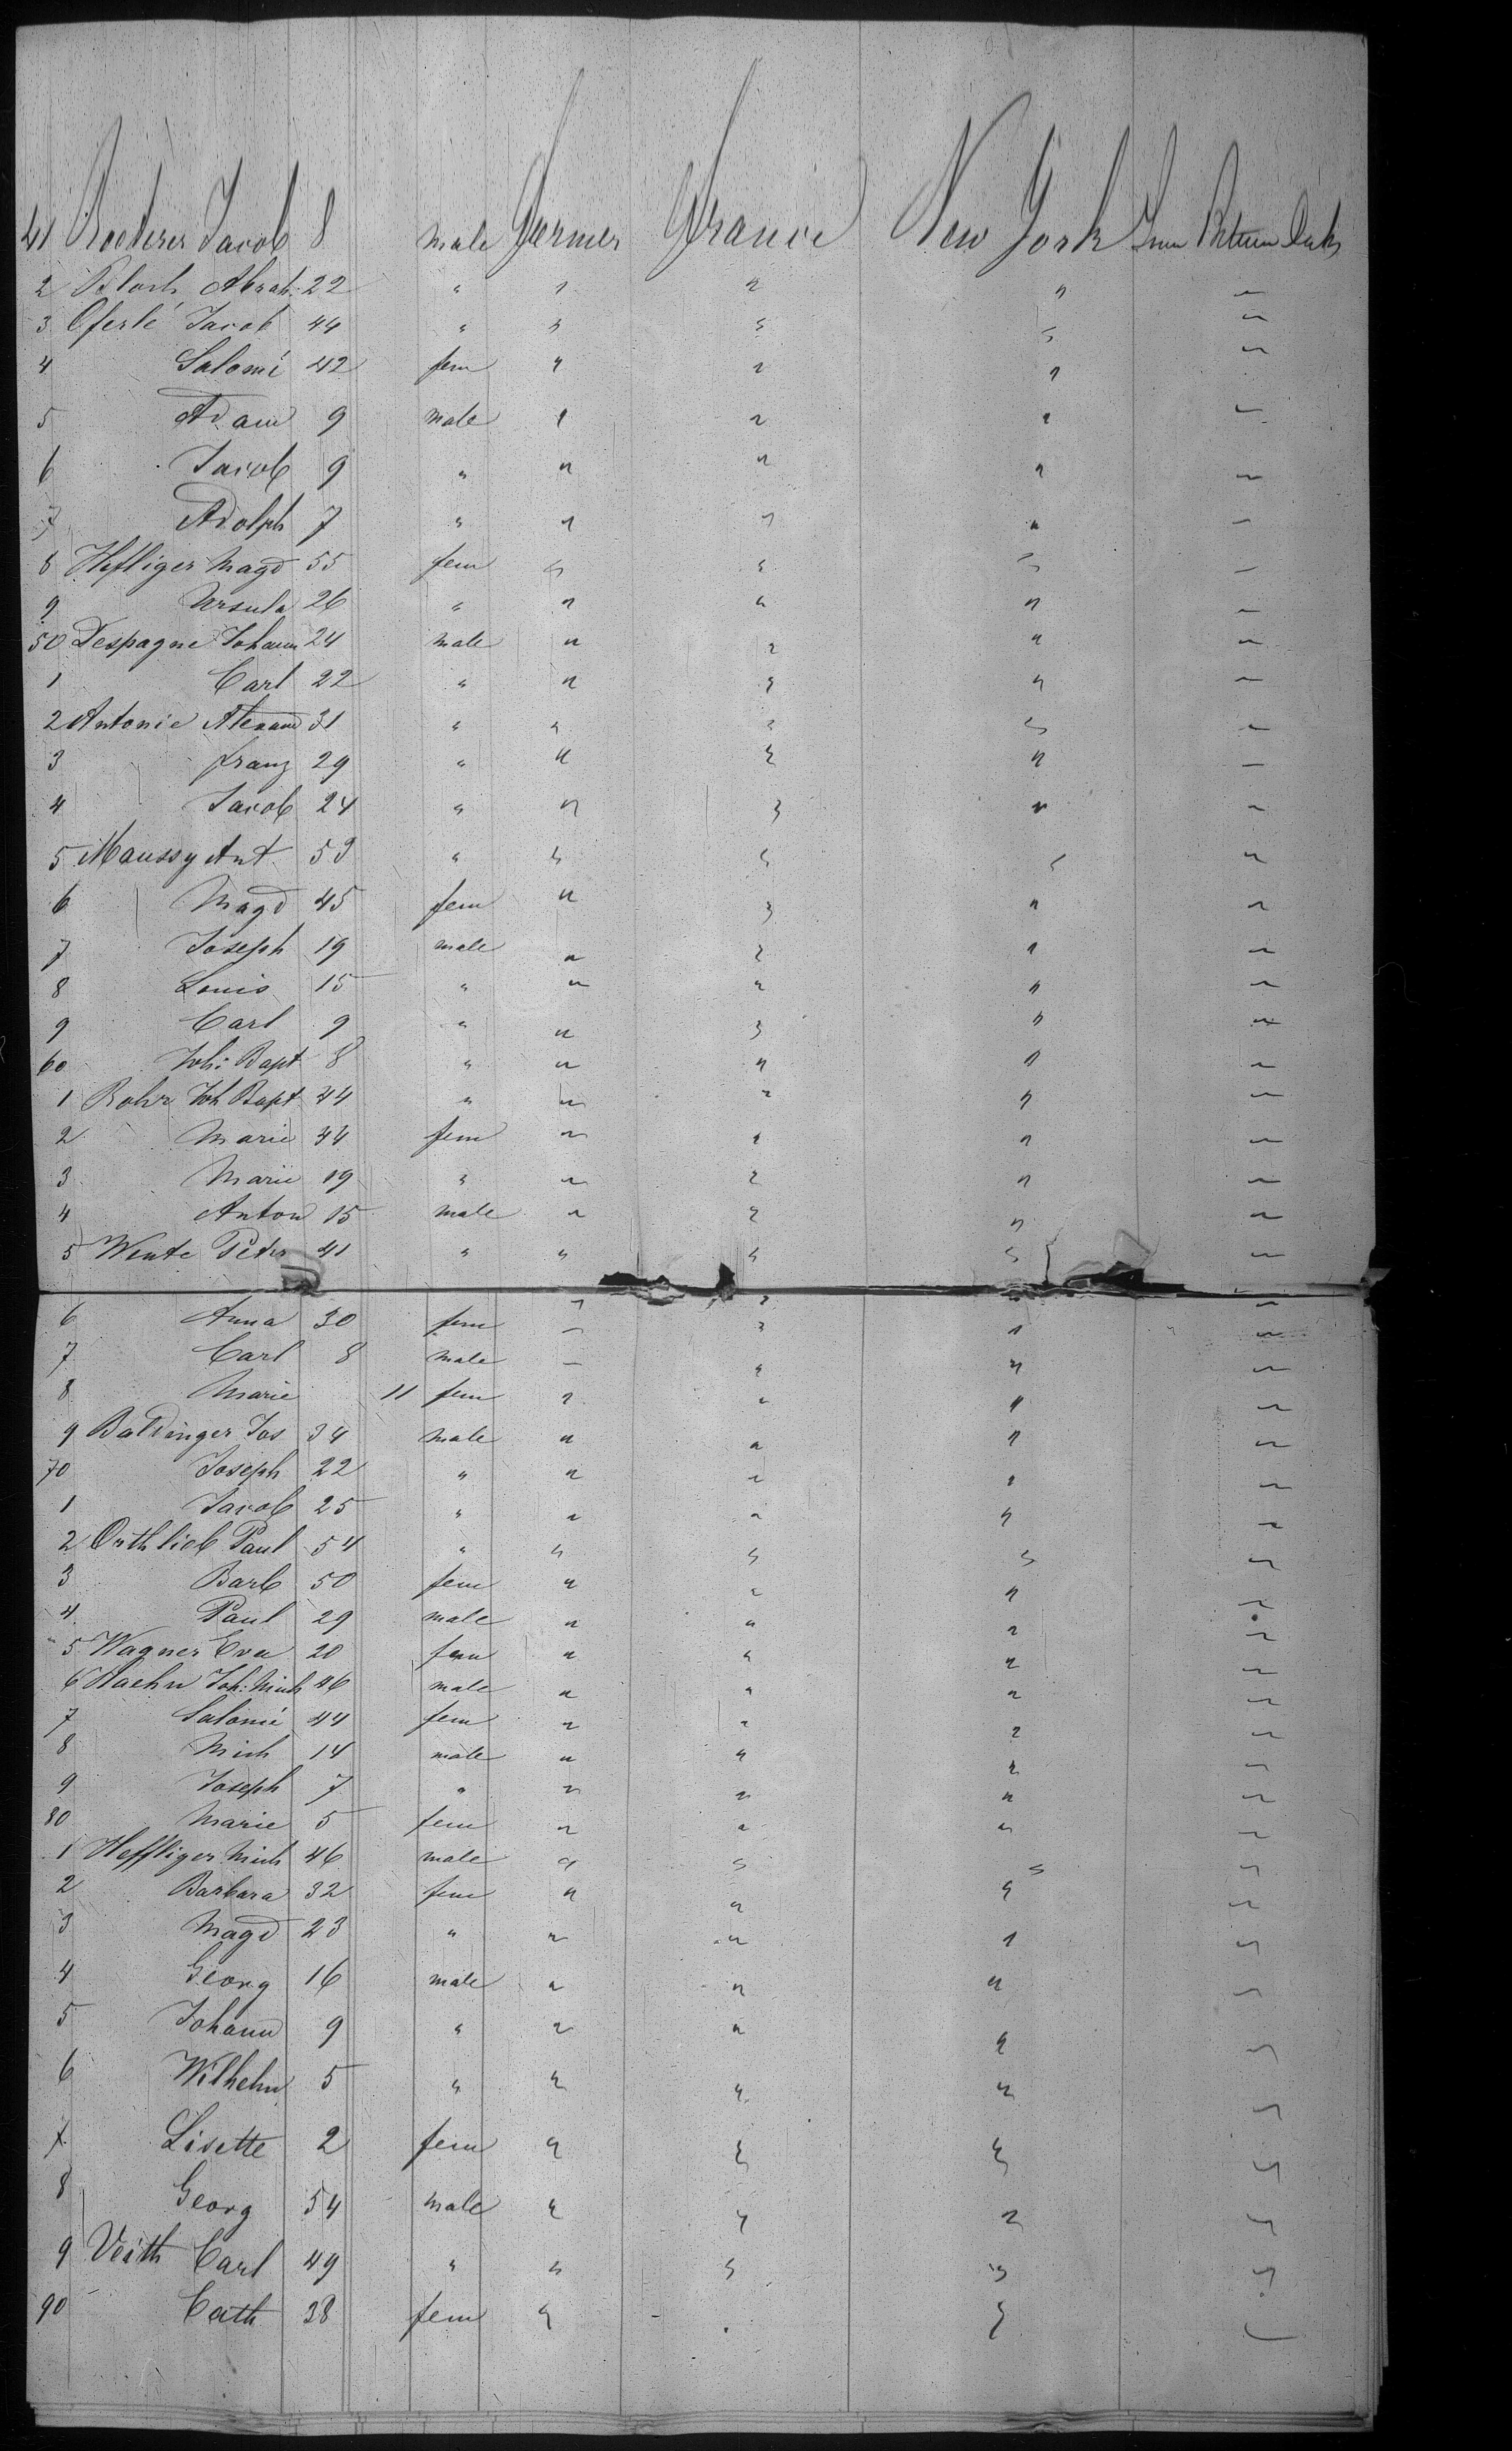 41 Roederer Jacob 8 male Farmer France New York
2 Bloch Abrah: 22 " " " " "
3 Oferlé Jacob 44 " " " " "
4 Salomé 42 fem " " " "
5 Adam 9 male " " " "
6 Jacob 9 " " " " "
7 Adolph 7 " " " " "
8 Hefliger Magd 55 fem " " " "
9 Ursula 26 " " " " "
50 Despagne Johann 24 male " " " "
1 Carl 22 " " " " "
2 Antonie Alexand 31 " " " " "
3 franz 29 " " " " "
4 Jacob 24 " " " " "
5 Maussy Ant. 59 " " " " "
6 Magd 45 fem " " " "
7 Joseph 19 male " " " "
8 Louis 15 " " " " "
9 Carl 9 " " " " "
60 Joh: Bapt 8 " " " " "
1 Rohr Joh Bapt 44 " " " " "
2 Marie 44 fem " " " "
3 Marie 19 " " " " "
4 Anton 15 male " " " "
5 Wente Peter 41 " " " " "
6 Anna 30 fem " " " "
7 Carl 8 male " " " "
8 Marie 11 fem " " " "
9 Baldinger Jos 34 male " " " "
70 Joseph 22 " " " " "
1 Jacob 25 " " " " "
2 Orthlieb Paul 54 " " " " "
3 Barb 50 fem " " " "
4 Paul 29 male " " " "
5 Wagner Eva 20 fem " " " "
6 Haehn Joh: Mich 46 male " " " "
7 Salomé 44 fem " " " "
8 Mich 14 male " " " "
9 Joseph 7 " " " " "
80 Marie 5 fem " " " "
1 Heffliger Mich 46 male " " " "
2 Barbara 32 fem " " " "
3 Magd 23 " " " " "
4 Georg 16 male " " " "
5 Johann 9 " " " " "
6 Wilhelm 5 " " " " "
7 Lisette 2 fem " " " "
8 Georg 54 male " " " "
9 Veith Carl 49 " " " " "
90 Cath 38 fem " " "